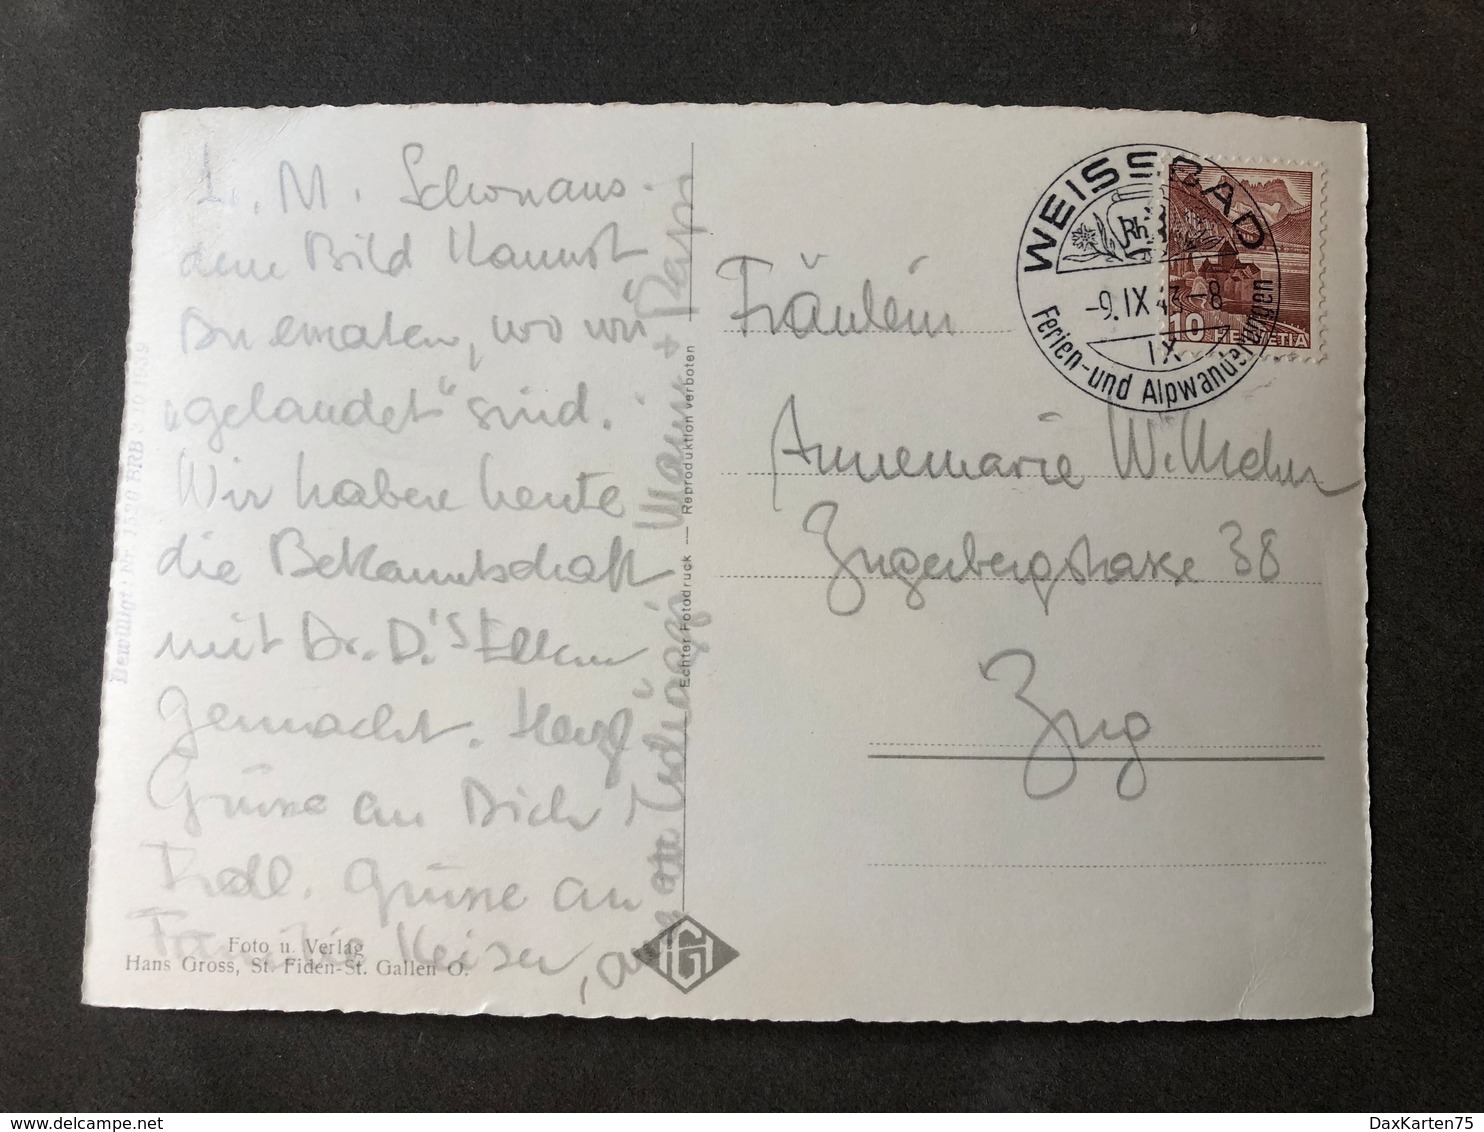 L. M. Schon aus
dem Bild kannst
Du erraten, wo wir
„gelandet“ sind.
Wir haben heute
die Bekanntschaft
mit Dr. D.'s Eltern
gemacht. Herzl.
Grüsse an Dich!
Frdl. Grüsse an
Familie Keiser,
Mama + Papa
Fräulein
Annemarie Wilhelm
Zugerbergstrasse 38
Zug
WEISSBAD
Rh.
-9.IX.43.-8
IX
Ferien- und Alpwanderungen
10 HELVETIA
Echter Fotodruck — Reproduktion verboten
Bewilligt: Nr. 1530 BRB 3. 10 1939
Foto u. Verlag
Hans Gross, St. Fiden-St. Gallen O.
HG
DaxKarten75
delcampe.net